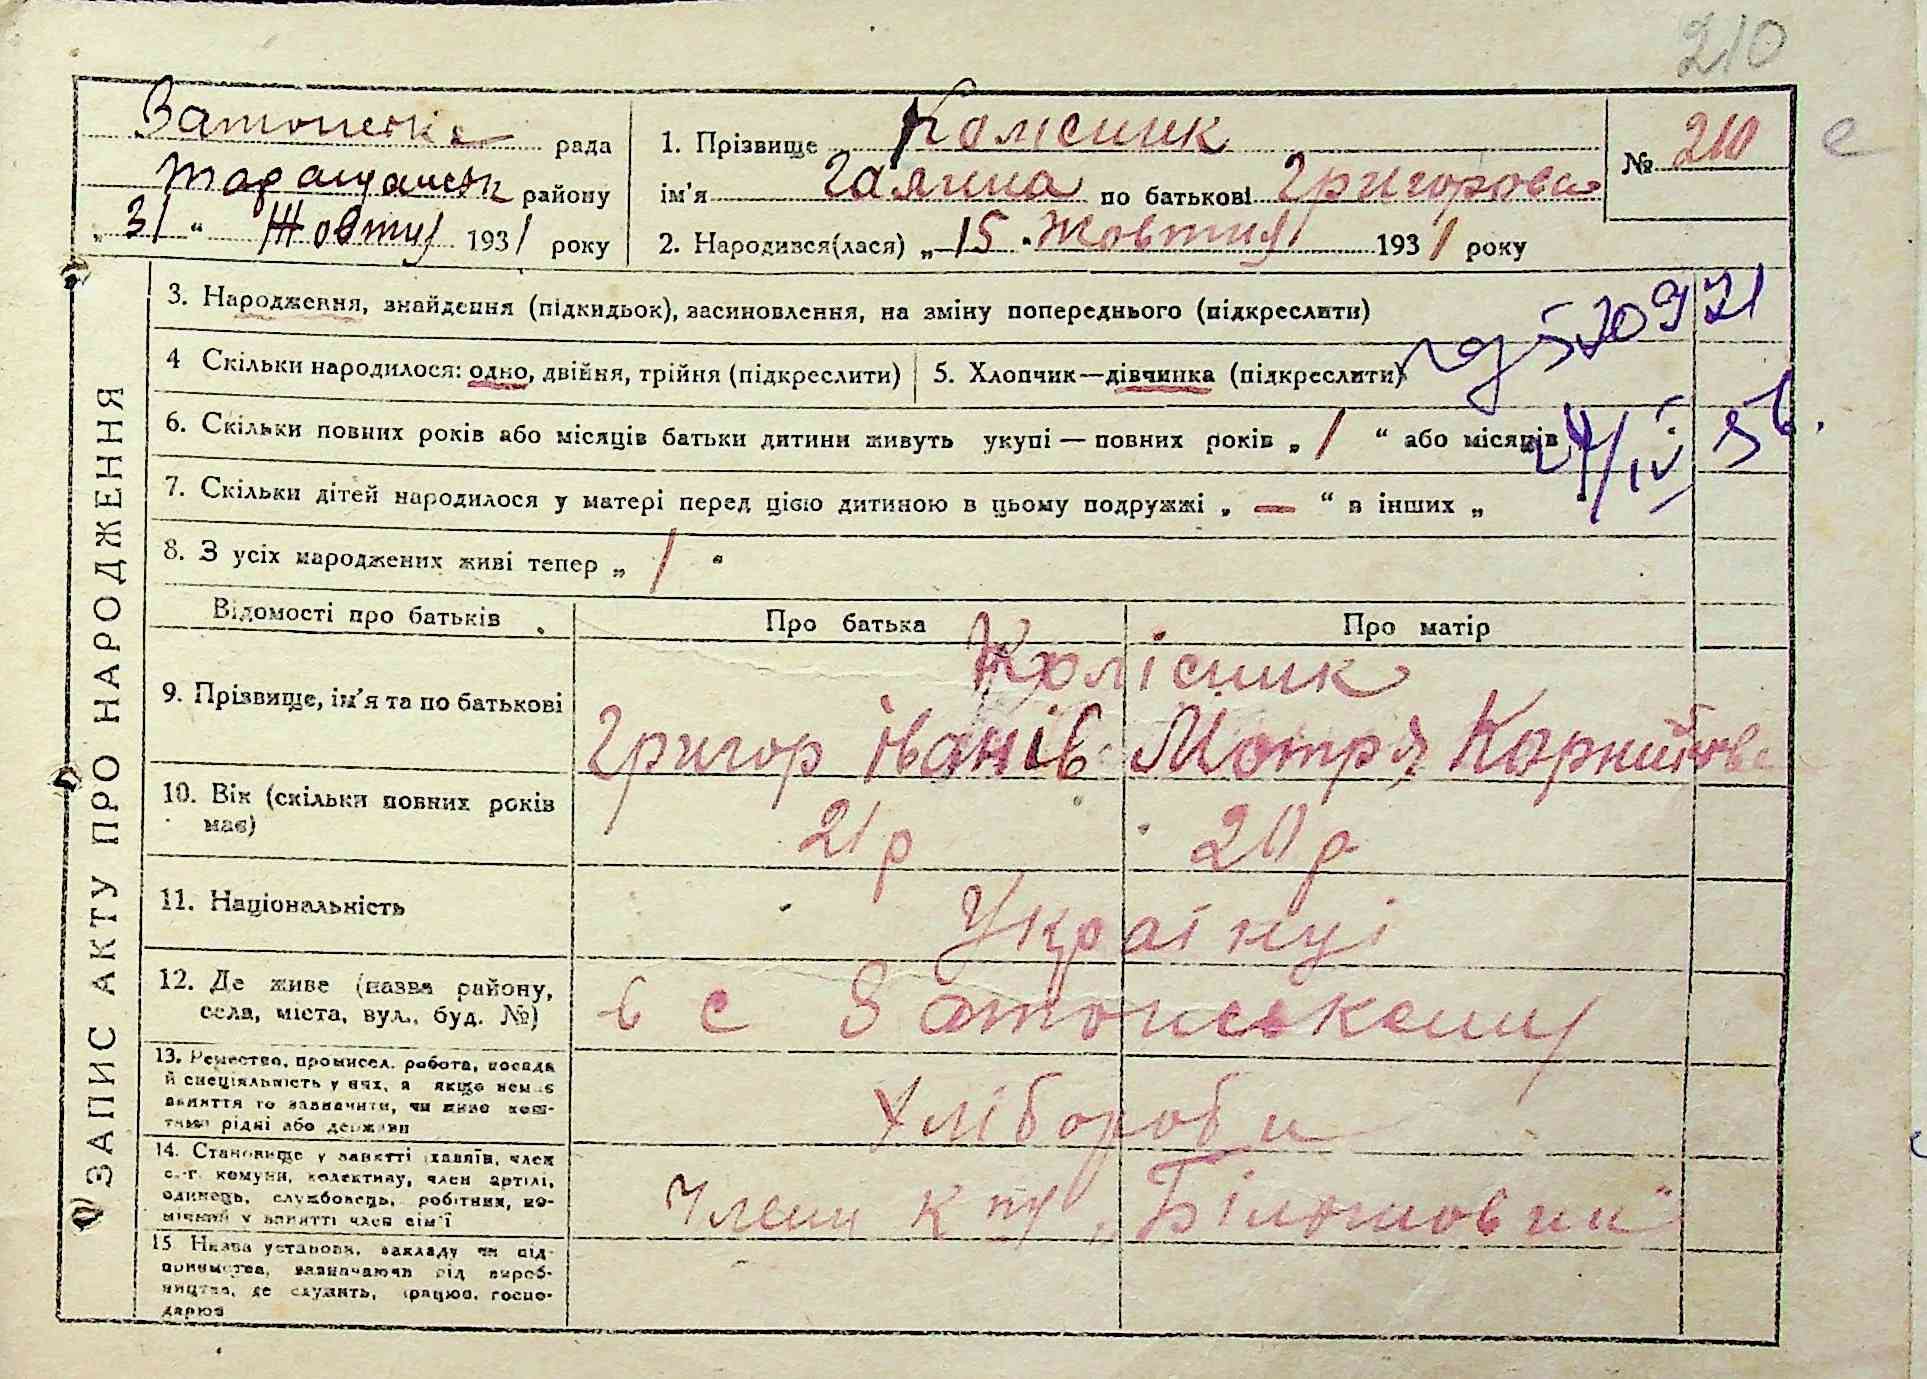 210
Затонська рада
Таращанськ району
„ 31 “ Жовтня 1931 року
1. Прізвище Колісник
ім'я Галина по батькові Григорова
2. Народився(лася) „ 15 “ Жовтня 1931 року
№ 210
е
3. Народження, знайдення (підкидьок), засиновлення, на зміну попереднього (підкреслити)
4 Скільки народилося: одно, двійня, трійня (підкреслити)
5. Хлопчик—дівчинка (підкреслити)
6. Скільки повних років або місяців батьки дитини живуть укупі — повних років „ 1 “ або місяців
24/IV 56.
7. Скільки дітей народилося у матері перед цією дитиною в цьому подружжі „ — “ в інших „
8. З усіх народжених живі тепер „ 1 “
ЗАПИС АКТУ ПРО НАРОДЖЕННЯ
Відомості про батьків
Про батька
Про матір
9. Прізвище, ім'я та по батькові
Колісник
Григор Іванів
Мотря Корніїва
10. Вік (скільки повних років має)
21 р
20 р
11. Національність
Українці
12. Де живе (назва району, села, міста, вул., буд. №)
в с Затонському
13. Ремество, промисел, робота, посада
й спеціяльність у них, а якщо немає
заняття то зазначити, чи живе кош-
тами рідні або держави
Хлібороби
14. Становище у занятті (хазяїн, член
с.-г. комуни, колективу, член артілі,
одинець, службовець, робітник, по-
мічний у занятті член сім'ї
Члени к
15 Назва установи, закладу чи під-
приємства, зазначаючи рід вироб-
ництва, де служить, працює, госпо-
дарює